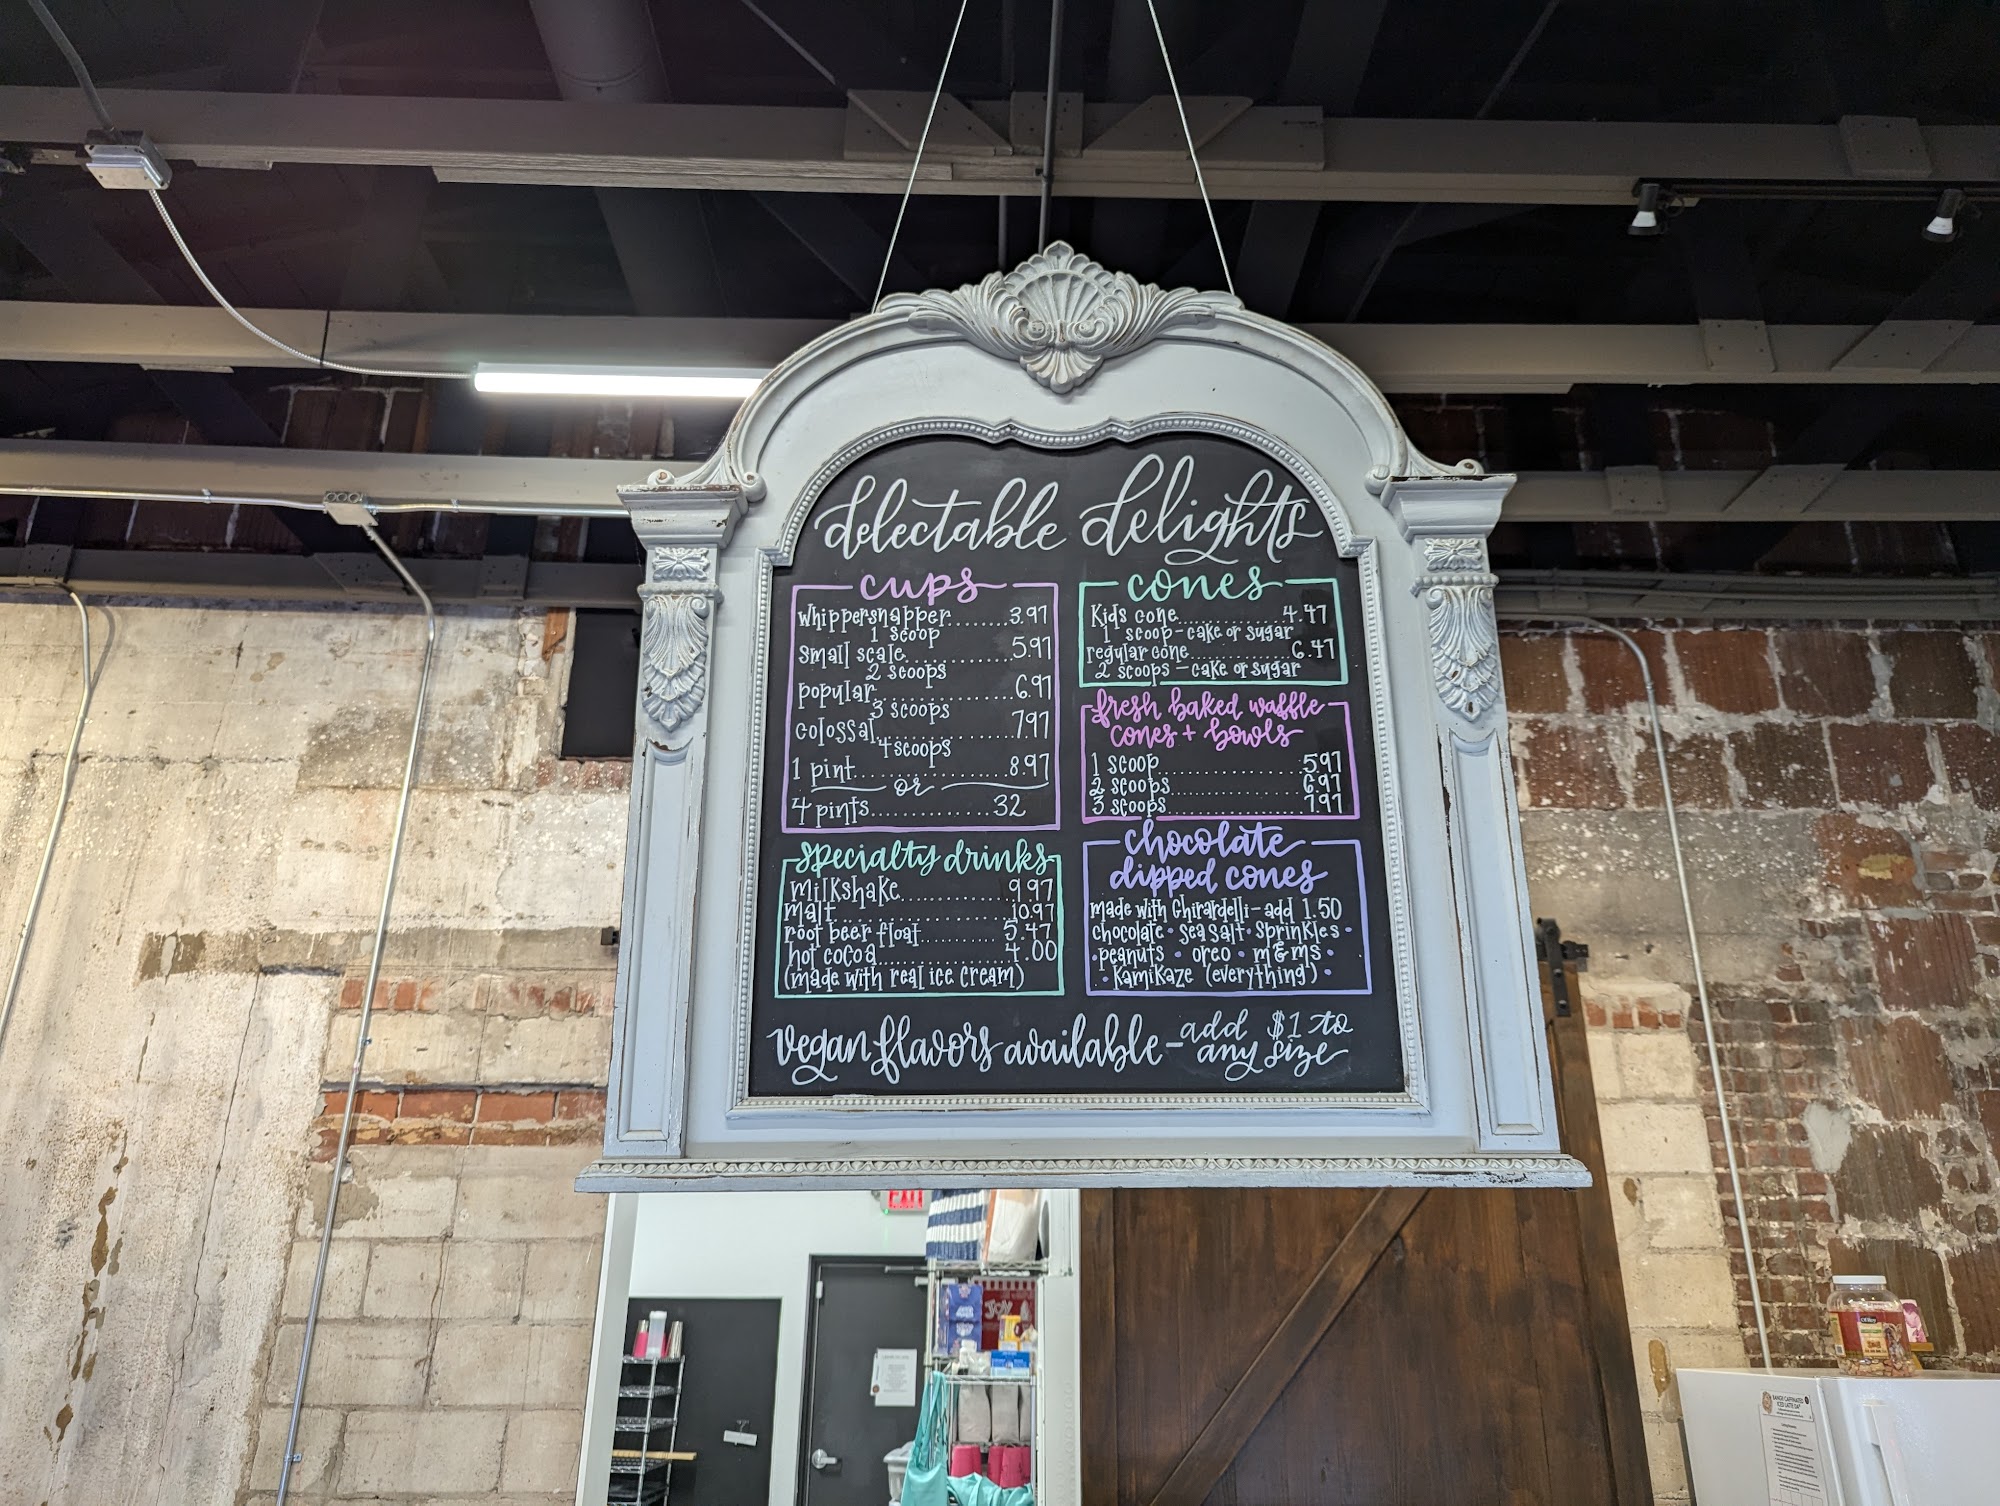 delectable delights
cups
whippersnapper........3.97
1 scoop
small scale............5.97
2 scoops
popular................6.97
3 scoops
colossal...............7.97
4 scoops
1 pint.................8.97
or
4 pints.............32
specialty drinks
milkshake............9.97
malt....................10.97
root beer float......... 5.47
hot cocoa...............4.00
(made with real ice cream)
cones
Kids cone............4.47
1 scoop - cake or sugar
regular cone.............6.47
2 scoops - cake or sugar
fresh baked waffle
cones + bowls
1 scoop.................5.97
2 scoops................6.97
3 scoops................7.97
chocolate
dipped cones
made with Ghirardelli - add 1.50
chocolate • sea salt • sprinkles •
• peanuts • oreo • m&ms •
• Kamikaze (everything) •
vegan flavors available - add $1 to
any size
EXIT
JOY